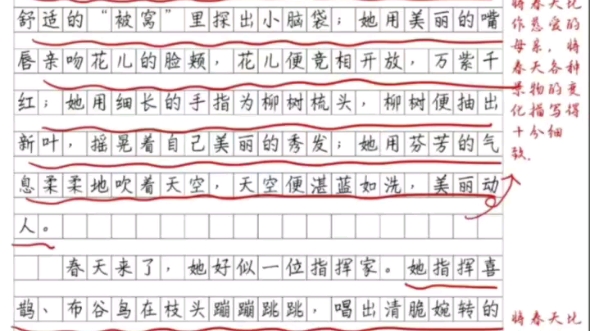 舒适的“被窝”里探出小脑袋；她用美丽的嘴
唇亲吻花儿的脸颊，花儿便竞相开放，万紫千
红；她用细长的手指为柳树梳头，柳树便抽出
新叶，摇晃着自己美丽的秀发；她用芬芳的气
息柔柔地吹着天空，天空便湛蓝如洗，美丽动
人。
春天来了，她好似一位指挥家。她指挥喜
鹊、布谷鸟在枝头蹦蹦跳跳，唱出清脆婉转的
将春天比
作慈爱的
母亲，将
春天各种
景物的变
化描写得
十分细
致。
将春天比